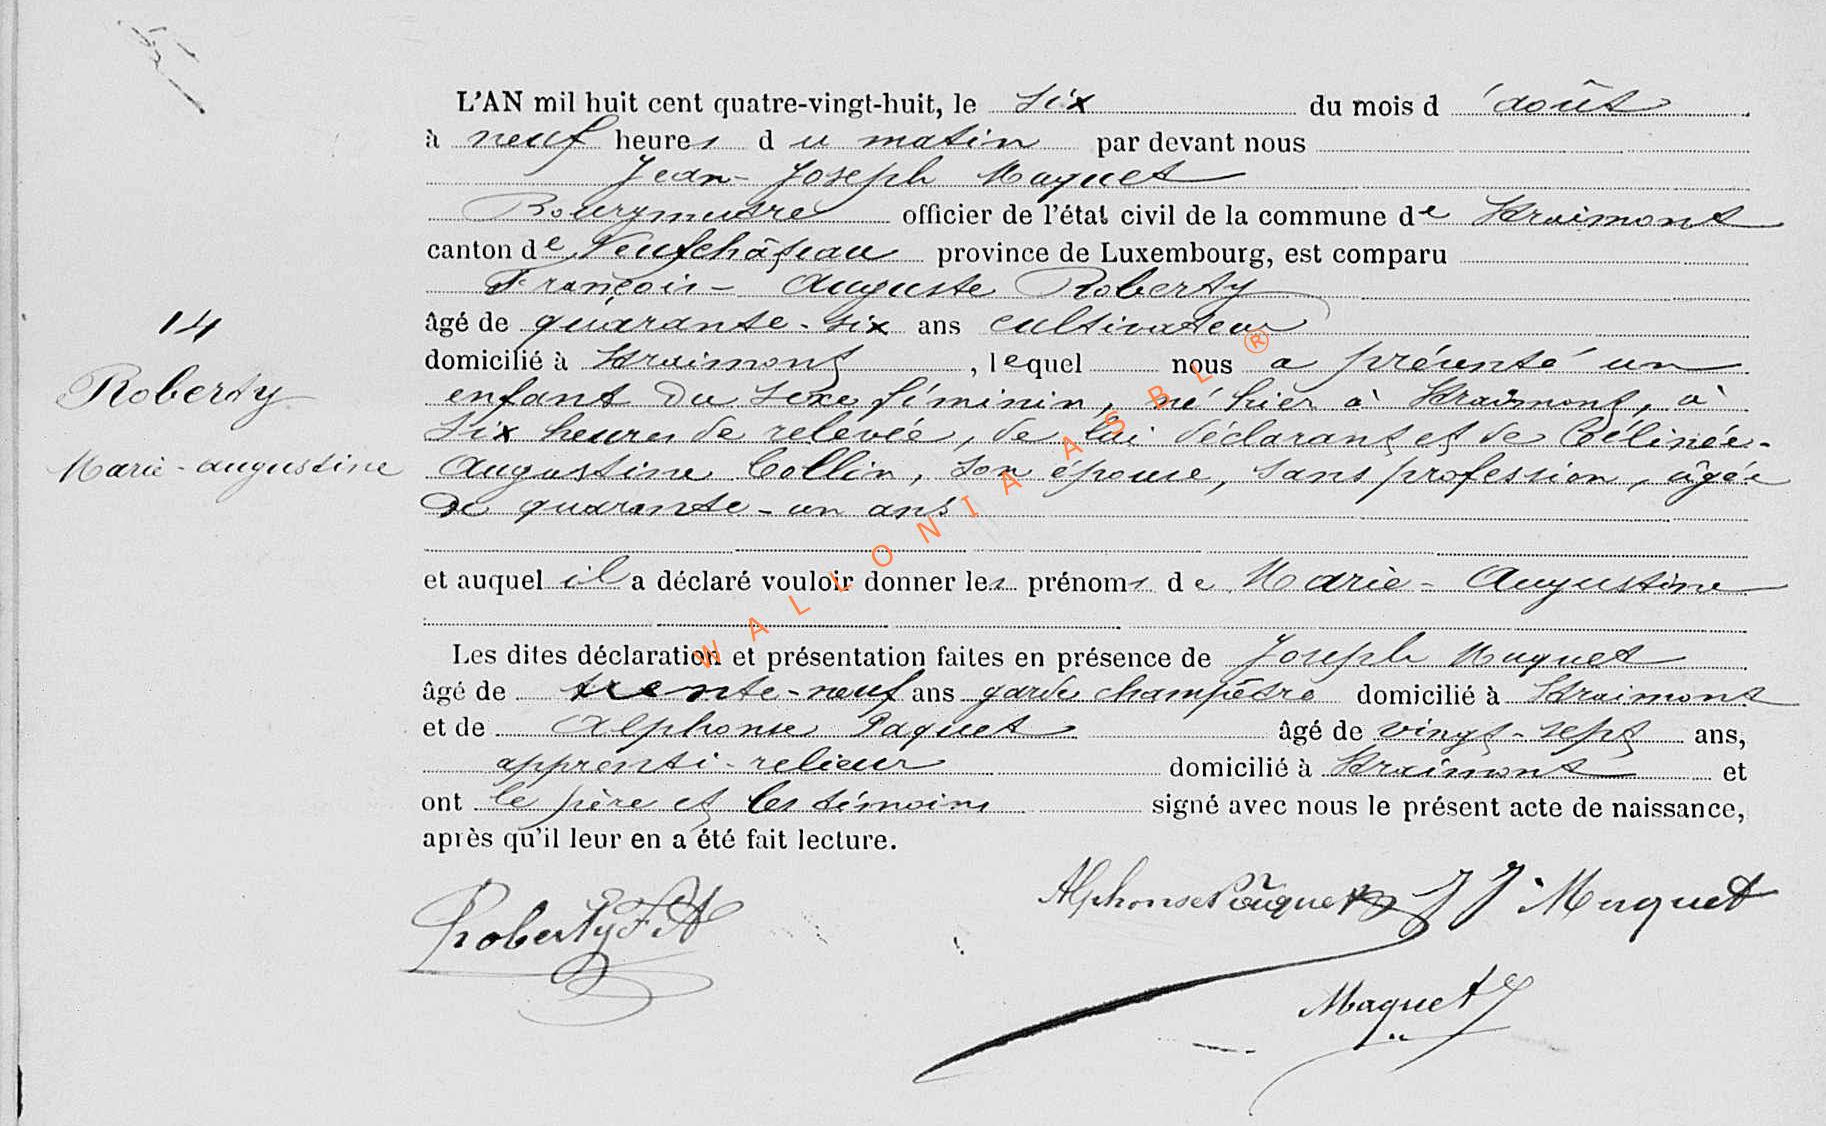 L'AN mil huit cent quatre-vingt-huit, le six du mois d'août
à neuf heures du matin par devant nous
Jean-Joseph Maquet
Bourgmestre officier de l'état civil de la commune de Straimont
canton de Neufchâteau province de Luxembourg, est comparu
François-Auguste Roberty
14
âgé de quarante-six ans cultivateur
domicilié à Straimont, lequel nous a présenté un
Roberty
enfant du sexe féminin, né hier à Straimont, à
six heures de relevée, de lui déclarant et de Célinée-
Marie-augustine
Augustine Collin, son épouse, sans profession, âgée
de quarante-un ans
et auquel il a déclaré vouloir donner les prénoms de Marie-Augustine
Les dites déclaration et présentation faites en présence de Joseph Maquet
âgé de trente-neuf ans garde champêtre domicilié à Straimont
et de Alphonse Paquet âgé de vingt-sept ans,
apprenti-relieur domicilié à Straimont et
ont le père et les témoins signé avec nous le présent acte de naissance,
après qu'il leur en a été fait lecture.
Roberty F A
Alphonse Paquet
J J Maquet
Maquet J
WALLONIA ASBL ®